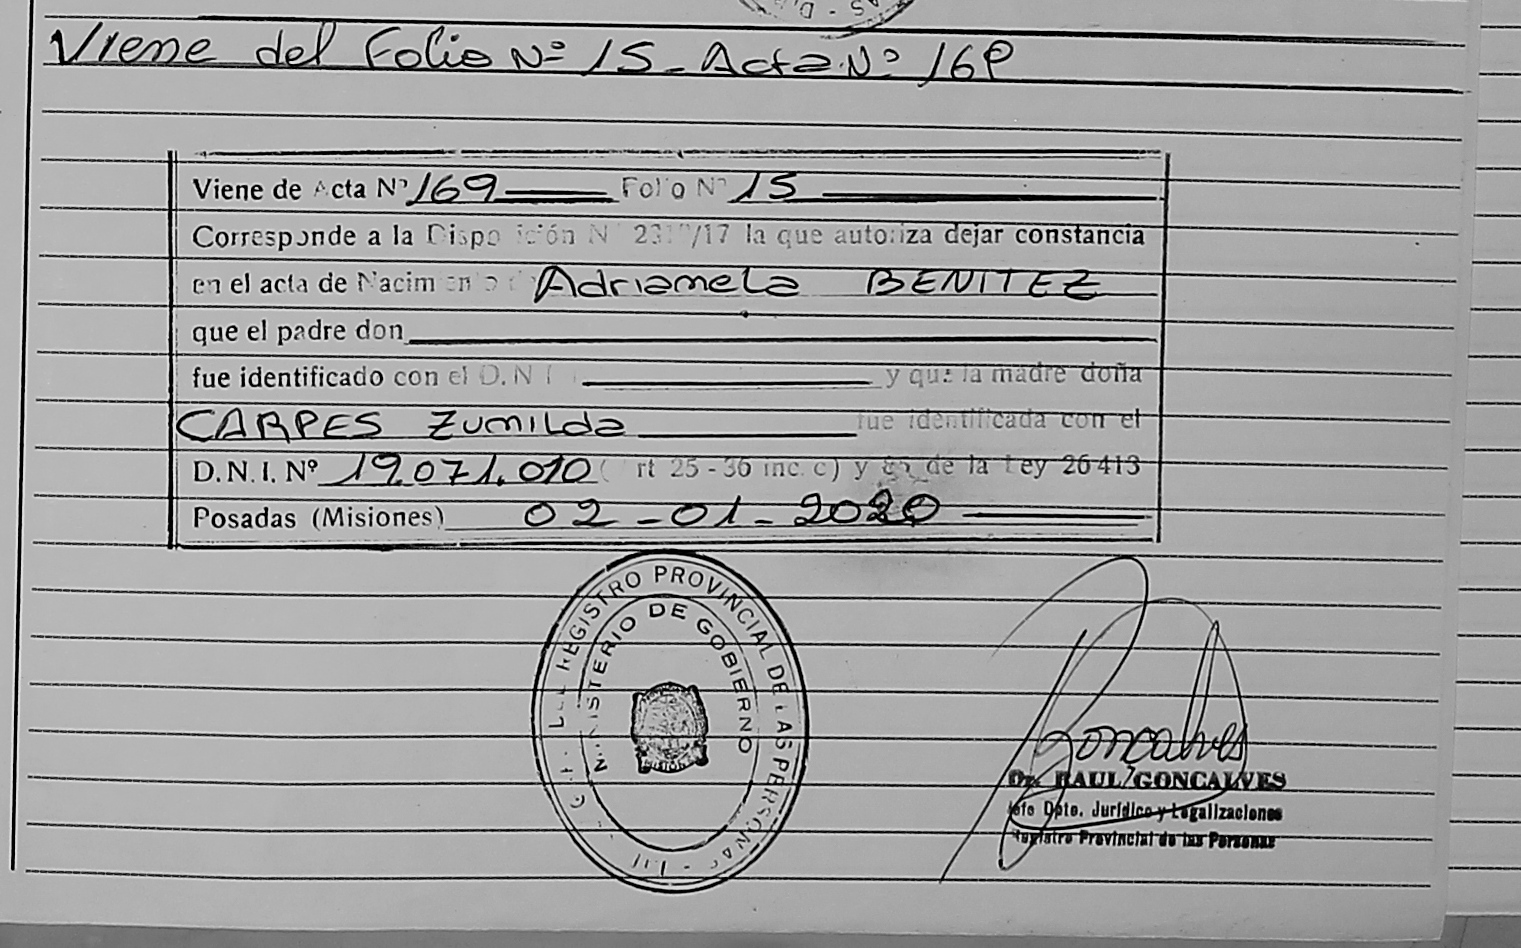 Viene del Folio Nº 15 - Acta Nº 169
Viene de Acta Nº 169 Folio Nº 15
Corresponde a la Disposición N /17 la que autoriza dejar constancia
en el acta de Nacimiento Adrianela BENITEZ
que el padre don
fue identificado con el D.N.I. y que la madre doña
CARPES Zunilda fue identificada con el
D.N.I. Nº 19.071.010 (Art 25 - 36 inc. c) y de la Ley 26413
Posadas (Misiones) 02-01-2020
REGISTRO PROVINCIAL DE LAS PERSONAS
MINISTERIO DE GOBIERNO
MISIONES
Goncalves
Dr. RAUL GONCALVES
Jefe Dpto. Jurídico y Legalizaciones
Registro Provincial de las Personas